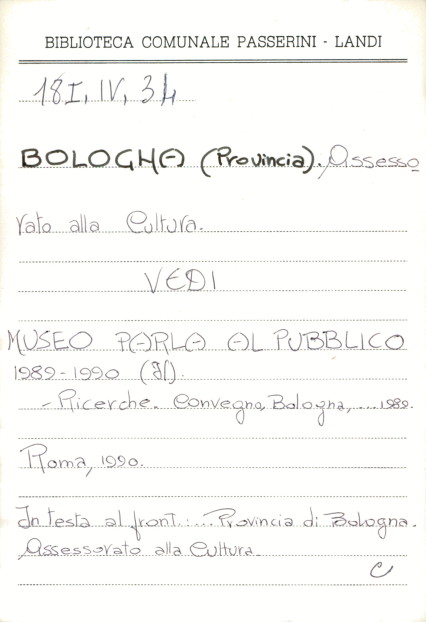 BIBLIOTECA COMUNALE PASSERINI - LANDI
18I, IV, 34
BOLOGNA (Provincia). Assesso
rato alla Cultura.
VEDI
MUSEO PARLA AL PUBBLICO
1989-1990 (Il).
- Ricerche. Convegno, Bologna, ... 1989.
Roma, 1990.
In testa al front.: ... Provincia di Bologna.
Assessorato alla Cultura.
C